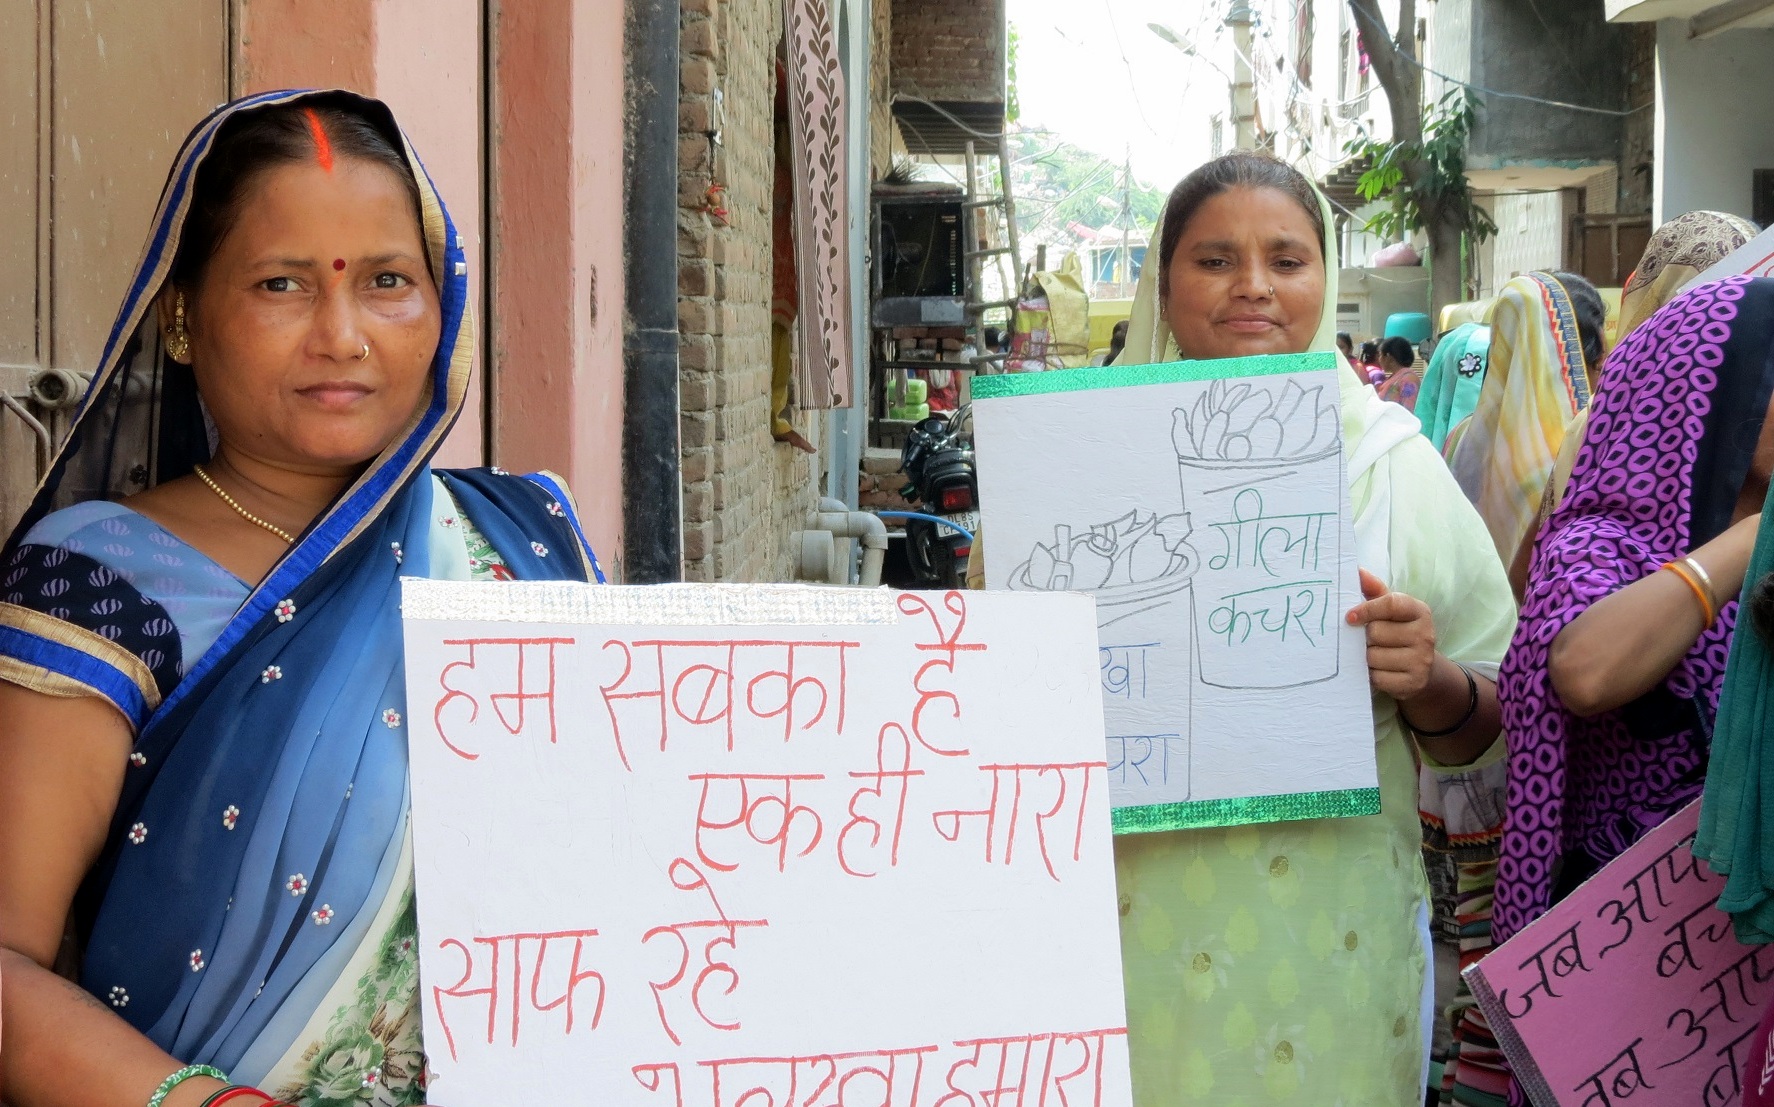 हम सबका है
एक ही नारा
साफ रहे
हमारा
गीला
कचरा
जब आप
तब आप